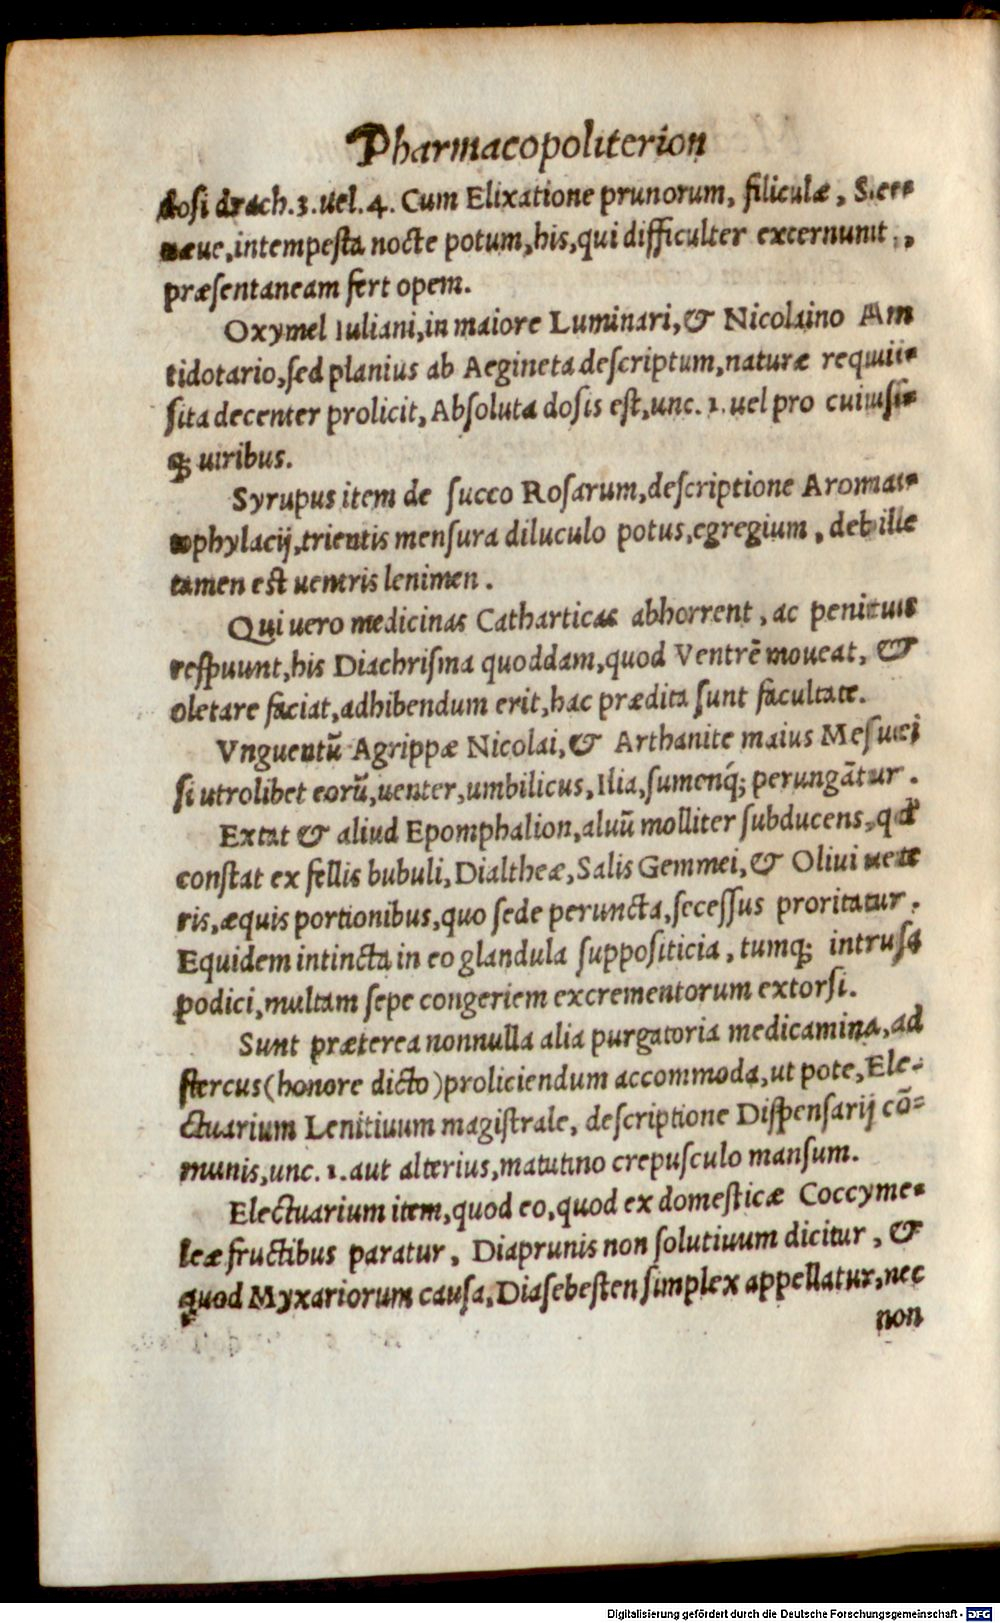 Pharmacopoliterion
dosi drach.3.uel.4. Cum Elixatione prunorum, filiculæ, Seen=
næue, intempesta nocte potum, his, qui difficulter excernunt,
præsentaneam fert opem.
Oxymel Iuliani, in maiore Luminari, & Nicolaino An
tidotario, sed planius ab Aegineta descriptum, naturæ requi=
sita decenter prolicit, Absoluta dosis est, unc. 1. uel pro cuiusi=
q; uiribus.
Syrupus item de succo Rosarum, descriptione Aroma=
tophylacij, trientis mensura diluculo potus, egregium, debile
tamen est uentris lenimen.
Qui uero medicinas Catharticas abhorrent, ac penitus
respuunt, his Diachrisma quoddam, quod Ventrē moueat, &
oletare faciat, adhibendum erit, hac prædita sunt facultate.
Vnguentū Agrippæ Nicolai, & Arthanite maius Mesuei
si utrolibet eorū, uenter, umbilicus, Ilia, sumenq́; perungātur.
Extat & aliud Epomphalion, aluū molliter subducens, qd
constat ex fellis bubuli, Dialtheæ, Salis Gemmei, & Oliui uete
ris, æquis portionibus, quo sede peruncta, secessus proritatur.
Equidem intincta in eo glandula suppositicia, tumq; intrusa
podici, multam sepe congeriem excrementorum extorsi.
Sunt præterea nonnulla alia purgatoria medicamina, ad
stercus (honore dicto) proliciendum accommoda, ut pote, Ele=
ctuarium Lenitiuum magistrale, descriptione Dispensarij cō=
munis, unc. 1. aut alterius, matutino crepusculo mansum.
Electuarium item, quod eo, quod ex domesticæ Coccyme=
leæ fructibus paratur, Diaprunis non solutiuum dicitur, &
quod Myxariorum causa, Diasebesten simplex appellatur, nec
non
Digitalisierung gefördert durch die Deutsche Forschungsgemeinschaft - DFG